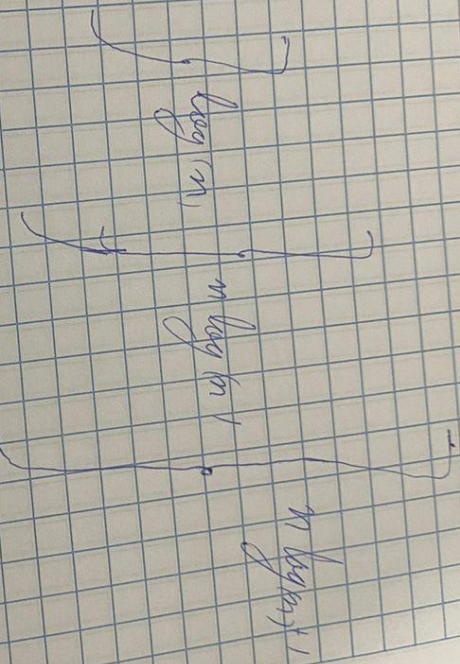 log(n)
n log(n)
n log(n)+1